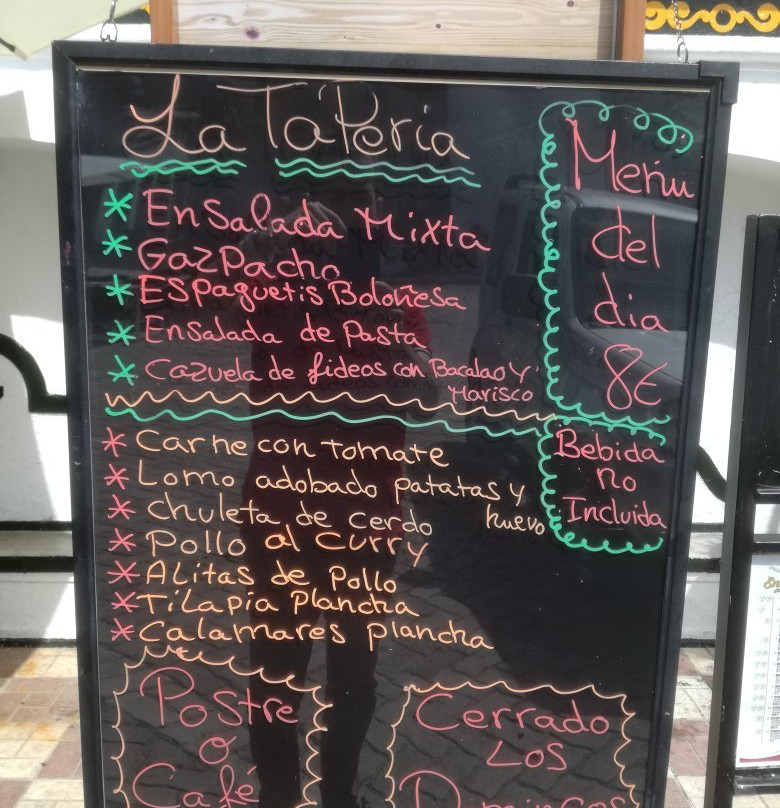 La TaPeria
* Ensalada Mixta
* Gazpacho
* Espaguetis Boloñesa
* Ensalada de Pasta
* Cazuela de fideos con Bacalao y
Marisco
Menu
del
dia
8€
Bebida
no
Incluida
* Carne con tomate
* Lomo adobado patatas y
huevo
* chuleta de cerdo
* Pollo al Curry
* Alitas de Pollo
* Tilapia Plancha
* Calamares plancha
Postre
o
Café
Cerrado
Los
Domingos